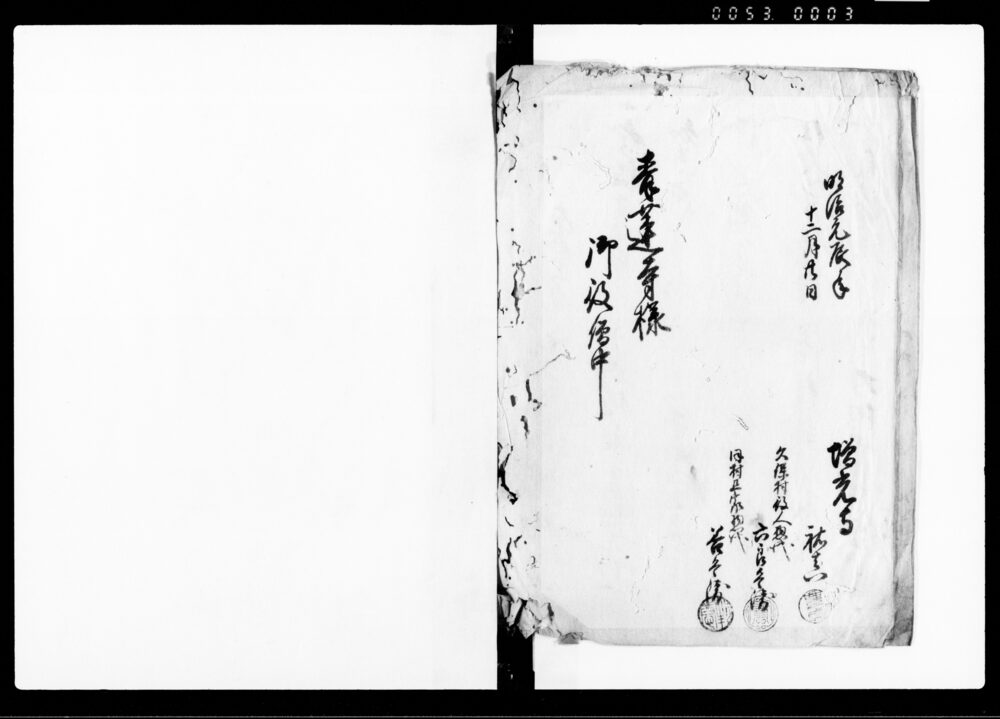 0053. 0003
明治元辰年
十二月廿日
増光寺
祐真
久保村役人惣代
六良兵衛
同村旦家惣代
善兵衛
青蓮寺様
御役僧中